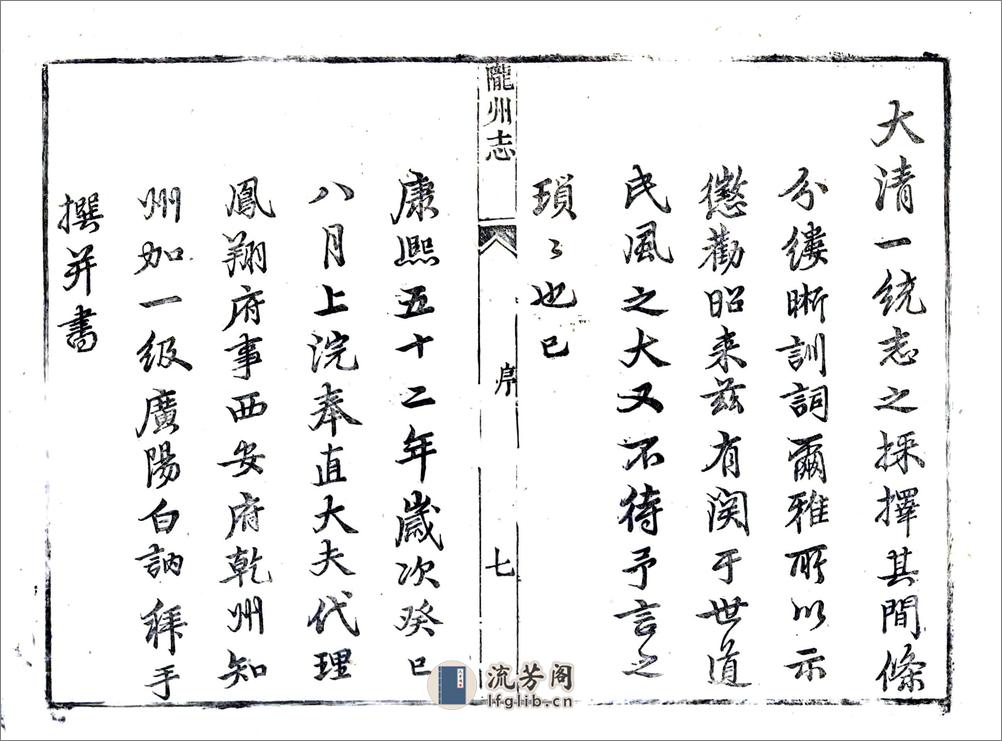 大清一統志之採擇其間條
分縷晰訓詞爾雅所以示
懲勸昭来兹有関于世道
民風之大又不待予言之
瑣〻也已
隴州志
序
七
康熙五十二年歲次癸巳
八月上浣奉直大夫代理
鳳翔府事西安府乾州知
州加一級廣陽白訥拜手
撰并書
流芳阁
lfglib.cn